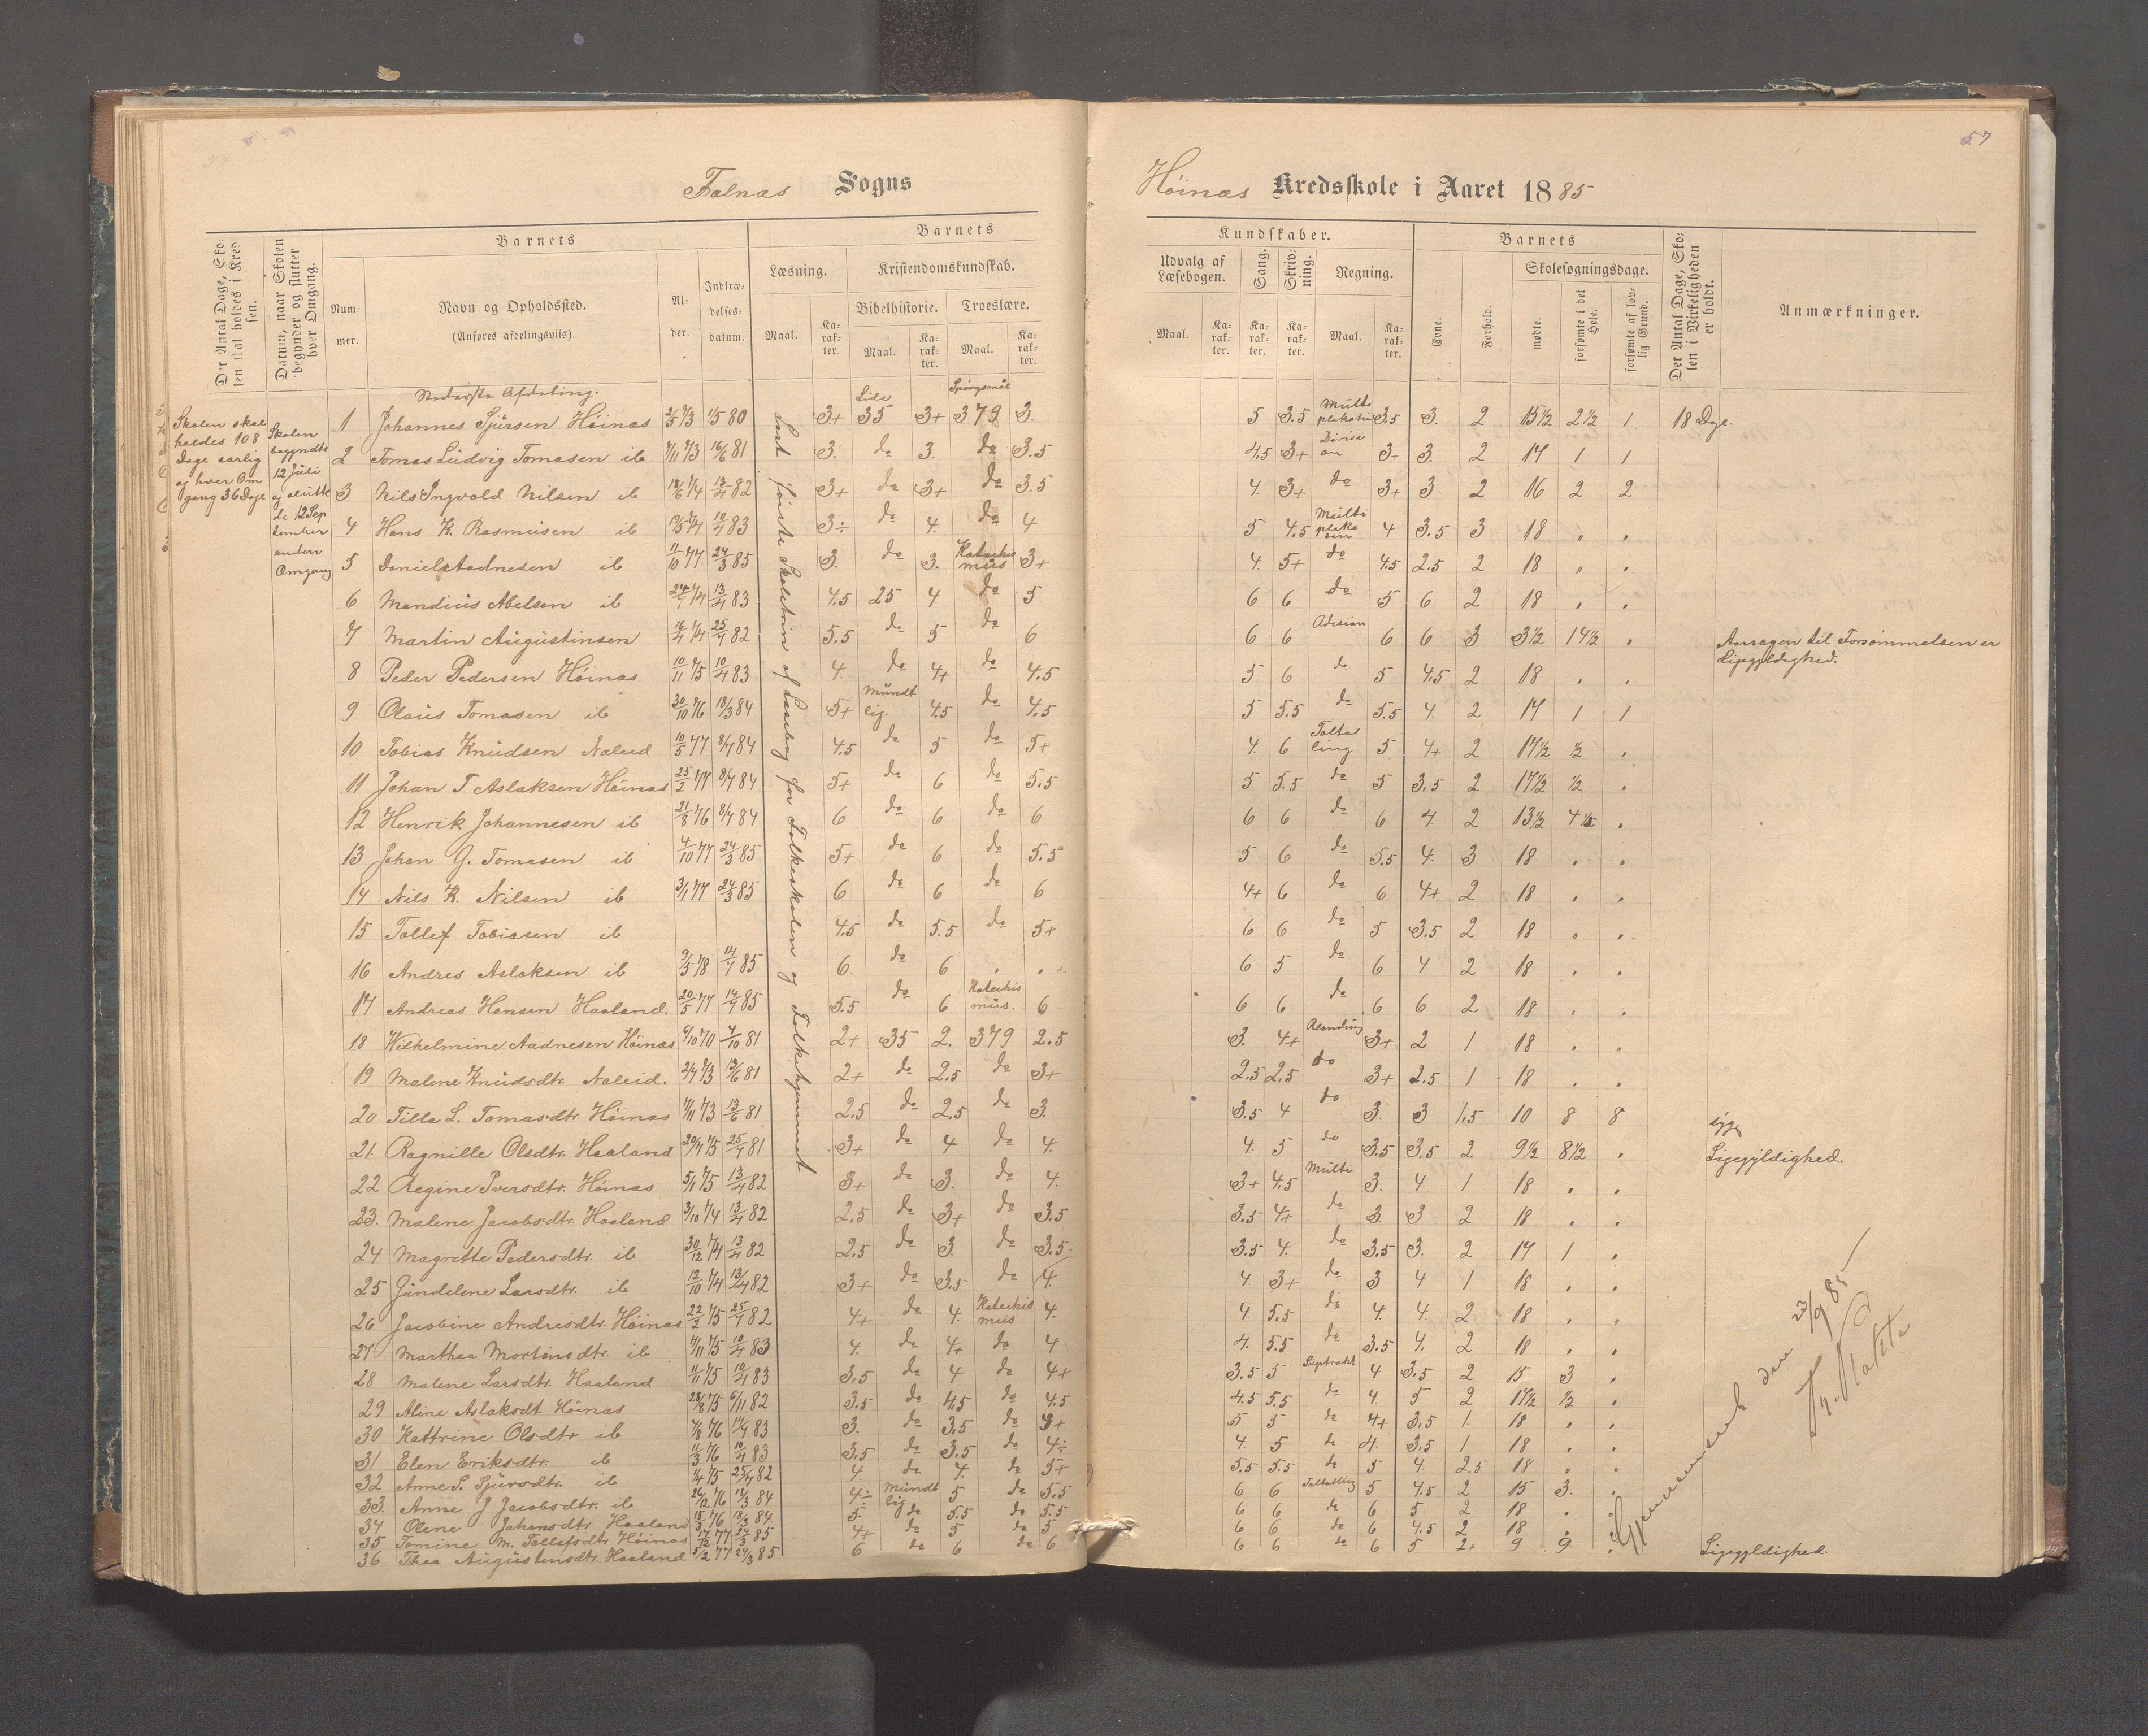 57
Falnæs Sogns
Høinæs Kredsskole i Aaret 1885
Det Antal Dage, Skolen skal holdes i Kredsen.
Datum, naar Skolen begynder og slutter hver Omgang.
Barnets
Nummer.
Navn og Opholdssted.
(Anføres afdelingsviis).
Alder.
Indtrædelsesdatum.
Barnets
Læsning.
Kristendomskundskab.
Bibelhistorie.
Troeslære.
Maal.
Karakter.
Maal.
Karakter.
Maal.
Karakter.
Kundskaber.
Udvalg af Læsebogen.
Sang.
Skrivning.
Regning.
Maal.
Karakter.
Karakter.
Karakter.
Maal.
Karakter.
Barnets
Evne.
Forhold.
Skolesøgningsdage.
mødte.
forsømte i det Hele.
forsømte af lovlig Grund.
Det Antal Dage, Skolen i Virkeligheden er holdt.
Anmærkninger.
Skolen skal
holdes 108
Dage aarlig
og hver Om
gang 36 Dage
Skolen
begyndte
12 Juli
og slutte
de 12 Sep
tember
anden
Omgang
Nederste Afdeling.
Læst første Skoletrin af Læsebog for Folkeskolen og Folkehjemmet
Side
Spørgsmål
1 Johannes Sjursen Høinæs 2/5 73 1/5 80 3+ 35 3+ 379 3. 5 3.5 Multi plikation 3.5 3. 2 15½ 2½ 1 18 Dage.
2 Tomas Ludvig Tomasen ib 7/11 73 16/6 81 3. do 3. do 3.5 4.5 3+ Divisi on 3. 3. 2 17 1 1
3 Nils Ingvald Nilsen ib 18/6 74 13/4 82 3+ do 3+ do 3.5 4. 3+ do 3+ 3 2 16 2 2
4 Hans K. Rasmusen ib 19/5 74 10/4 83 3÷ do 4. do 4 5 4.5 Multi 4 3.5 3 18 " "
5 Daniel Aadnesen ib 11/10 77 24/3 85 3. do 3. Katechis mus 3+ 4. 5+ do 4.5 2.5 2 18 " "
6 Mandius Abelsen ib 24/7 74 13/4 83 4.5 25 4 do 5 6 6 do 5 6 2 18 " "
7 Martin Augustinsen 16/4 74 25/4 82 5.5 do 5 do 6 6 6 Adision 6 6 3 3½ 14½ " Aarsagen til Forsømmelsen er
Ligegyldighed.
8 Peder Pedersen Høinæs 10/11 75 10/4 83 4. do 4+ do 4.5 5 6 do 5 4.5 2 18 " "
9 Olaus Tomasen ib 30/10 76 18/3 84 5+ Mundt lig. 4.5 do 4.5 5 5.5 do 5.5 4. 2 17 1 1
10 Tobias Knudsen Naleid 10/5 77 8/7 84 4.5 do 5 do 5+ 4. 6 5 4+ 2 17½ ½ "
11 Johan T Aslaksen Høinæs 25/2 77 8/7 84 5+ do 6 do 5.5 5 5.5 do 5 3.5 2 17½ ½ "
12 Henrik Johannesen ib 21/8 76 8/7 84 6 do 6 do 6 6 6 do 6 4 2 13½ 4½ "
13 Johan G. Tomasen ib 4/10 77 24/3 85 5+ do 6 do 5.5 5 6 do 5.5 4. 3 18 " "
14 Nils K. Nilsen ib 3/1 77 24/3 85 6 do 6 do 6 4+ 6 do 6 4+ 2 18 " "
15 Tollef Tobiasen ib 4.5 do 5.5 do 5+ 6 6 do 5 3.5 2 18 " "
16 Andres Aslaksen ib 9/5 78 14/7 85 6. do 6 " " 6 5 do 6 4 2 18 " "
17 Andreas Hansen Haaland. 20/5 77 14/7 85 5.5 do 6 Katechis mus. 6 6 6 do 6 6 2 18 " "
18 Wilhelmine Aadnesen Høinæs 6/10 70 4/10 81 2+ 35 2. 379 2.5 3. 4+ 3+ 2 1 18 " "
19 Malene Knudsdtr. Naleid. 2/7 73 13/6 81 2+ do 2.5 do 3+ 2.5 2.5 do 3+ 2.5 1 18 " "
20 Tilla L. Tomasdtr. Høinæs 7/11 73 13/6 81 2.5 do 2.5 do 3. 3.5 4 do 3. 3 1.5 10 8 8 syg
21. Ragnille Olsdtr. Haaland 20/7 75 25/4 81 3+ do 4 do 4. 4. 5 do 3.5 3.5 2 9½ 8½ " Ligegyldighed.
22 Regine Iversdtr. Høinæs 5/1 75 13/4 82 3+ do 3. do 4. 3+ 4.5 Multi 3. 4 1 18 " "
23. Malene Jacobsdtr. Haaland 3/10 74 13/4 82 2.5 do 3+ do 3.5 3.5 4+ do 3. 3 2 18 " "
24 Magrette Pedersdtr. ib 30/12 74 13/4 82 2.5 do 3. do 3.5 3.5 4. do 3.5 3. 2 17 1 "
25 Gundelene Larsdtr. ib 12/10 74 13/4 82 3+ do 3.5 do 4. 4. 3+ do 3 4 1 18 " "
26 Jacobine Andresdtr. Høinæs 22/2 75 25/4 82 4+ do 4. Katechis mus 4. 4. 5.5 do 4. 4. 2 18 " "
27 Marthea Mortensdtr. ib 7/11 75 10/4 83 4. do 4+ do 4 4. 5.5 do 3.5 4. 2 18 " "
28 Malene Larsdtr. Haaland 11/11 75 10/4 83 3.5 do 4 do 4+ 3.5 5 4 3.5 2 15 3 "
29 Aline Aslaksdt Høinæs 28/8 75 6/11 82 3.5 do 4.5 do 4.5 4.5 5.5 do 4. 5 2 17½ ½ "
30 Kattrine Olsdtr ib 7/8 76 14/4 83 3. do 3.5 do 3+ 5 5 do 4+ 3.5 1. 18 " "
31 Elen Eriksdtr. ib 11/3 76 10/4 83 3.5 do 3.5 do 4÷ 4. 5 do 4. 3.5 1 18 " "
32 Anne S. Sjursdtr. ib 1/4 75 25/4 82 4. do 4. do 5+ 5.5 5.5 do 5 4. 2.5 18 " "
33. Anne J Jacobsdtr. ib 26/12 76 18/3 84 4÷ Mundt lig 5 do 5.5 6 6 5 4.5 2 15 3. "
34 Olene Johansdtr Haaland 15/3 76 18/3 84. 5. do 5.5 do 5.5 6 6 do 6 5 2 18 " "
35 Tomine M. Tollefsdtr Høinæs 17/12 77 24/3 85 4+ do 5 do 5 6 6 do 6 4.5 2 18 " "
36 Thea Augustinsdtr. Haaland 5/2 77 24/3 85 6 do 6 do 6 6 6 do 6 5 2+ 9 9 " Ligegyldighed.
den 23/9 85